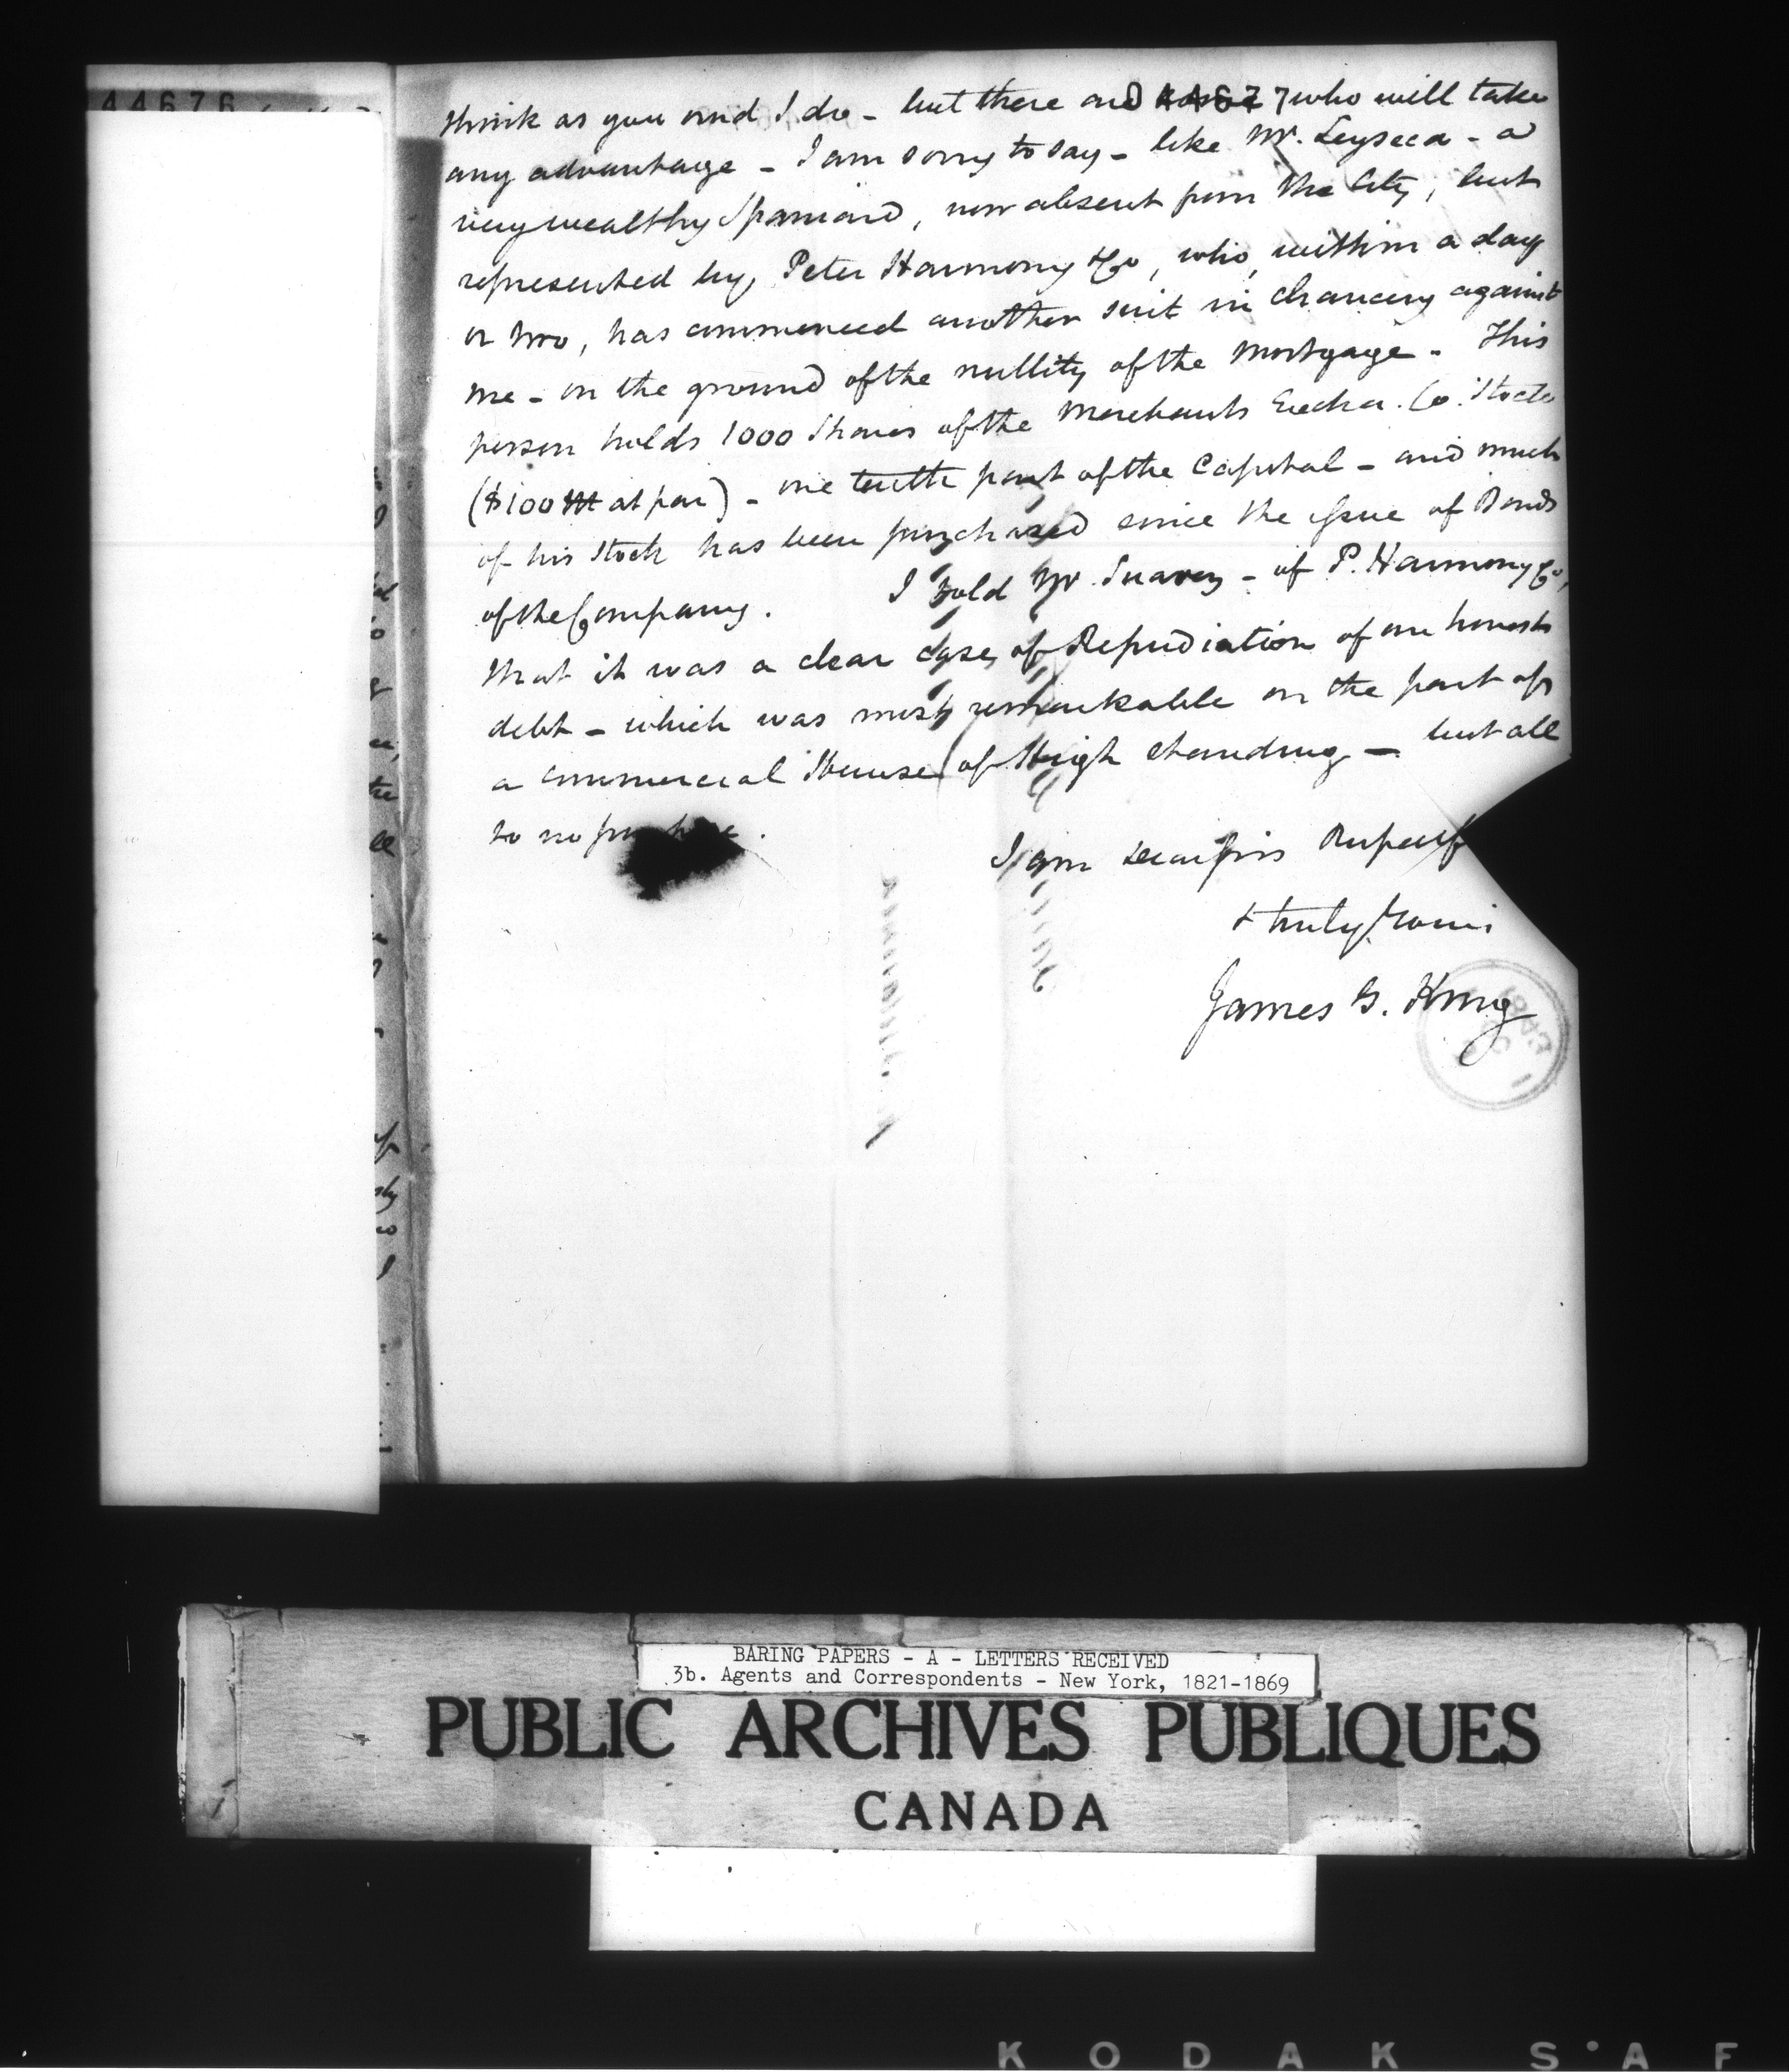 44676
think as you and I do - but there are some 44677 who will take
any advantage - I am sorry to say - like Mr. Leyseca - a
very wealthy Spaniard, now absent from the City, but
represented by Peter Harmony &Co, who, within a day
or two, has commenced another suit in Chancery against
me - on the ground of the nullity of the Mortgage - This
person holds 1000 Shares of the Merchants Excha. Co. Stock
($100 M at par) - one tenth part of the Capital - and much
of his Stock has been purchased since the issue of Bonds
of the Company. I told Mr. Suarez - of P. Harmony &Co,
that it was a clear case of Repudiation of an honest
debt - which was most remarkable on the part of
a commercial House of High standing - but all
to no purpose.
I am dear Sirs Respecf
& truly Yours
James G. King
BARING PAPERS - A - LETTERS RECEIVED
3b. Agents and Correspondents - New York, 1821-1869
PUBLIC ARCHIVES PUBLIQUES
CANADA
KODAK S.AF